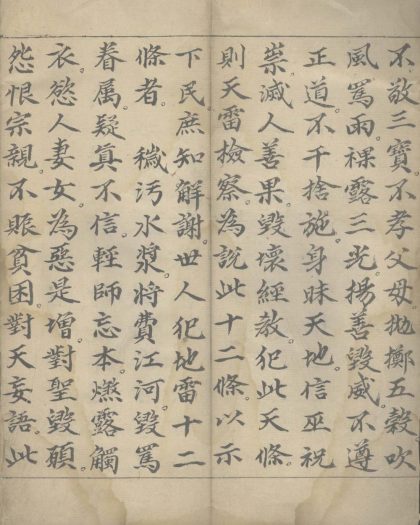 不敬三寶。不孝父母。拋擲五穀。吹
風罵雨。裸露三光。揚善毀威。不遵
正道。不千捨施。身昧天地。信巫祝
祟。滅人善果。毀壞經教。犯此天條。
則天雷檢察。為說此十二條。以示
下民。庶知解謝。世人犯地雷十二
條者。穢污水漿。將費江河。毀罵
眷属。疑真不信。輕師忘本。燃露觸
衣。慾人妻女。為惡是增。對聖毀願。
怨恨宗親。不賑貧困。對天妄語。此